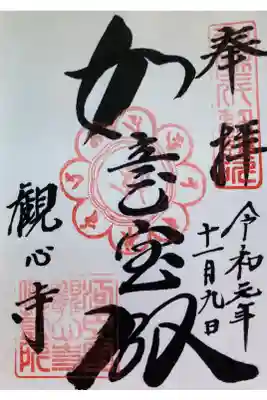 奉拝
令和元年
十一月九日
如意宝殿
観心寺